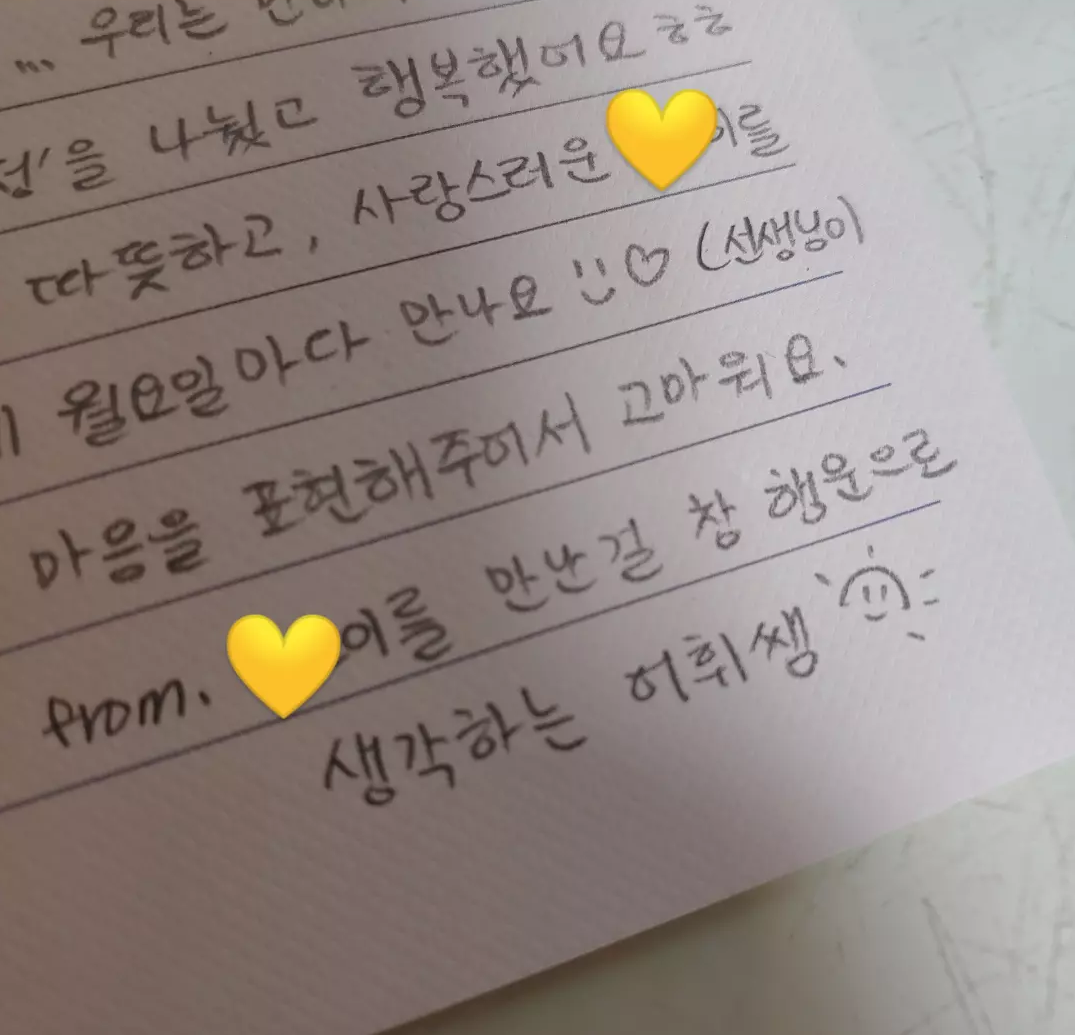 ... 우리는
을 나눴고 행복했어요 ㅎㅎ
따뜻하고, 사랑스러운 이를
월요일마다 만나요 (선생님이
마음을 표현해주어서 고마워요.
from. 이를 만난걸 참 행운으로
생각하는 어휘쌤